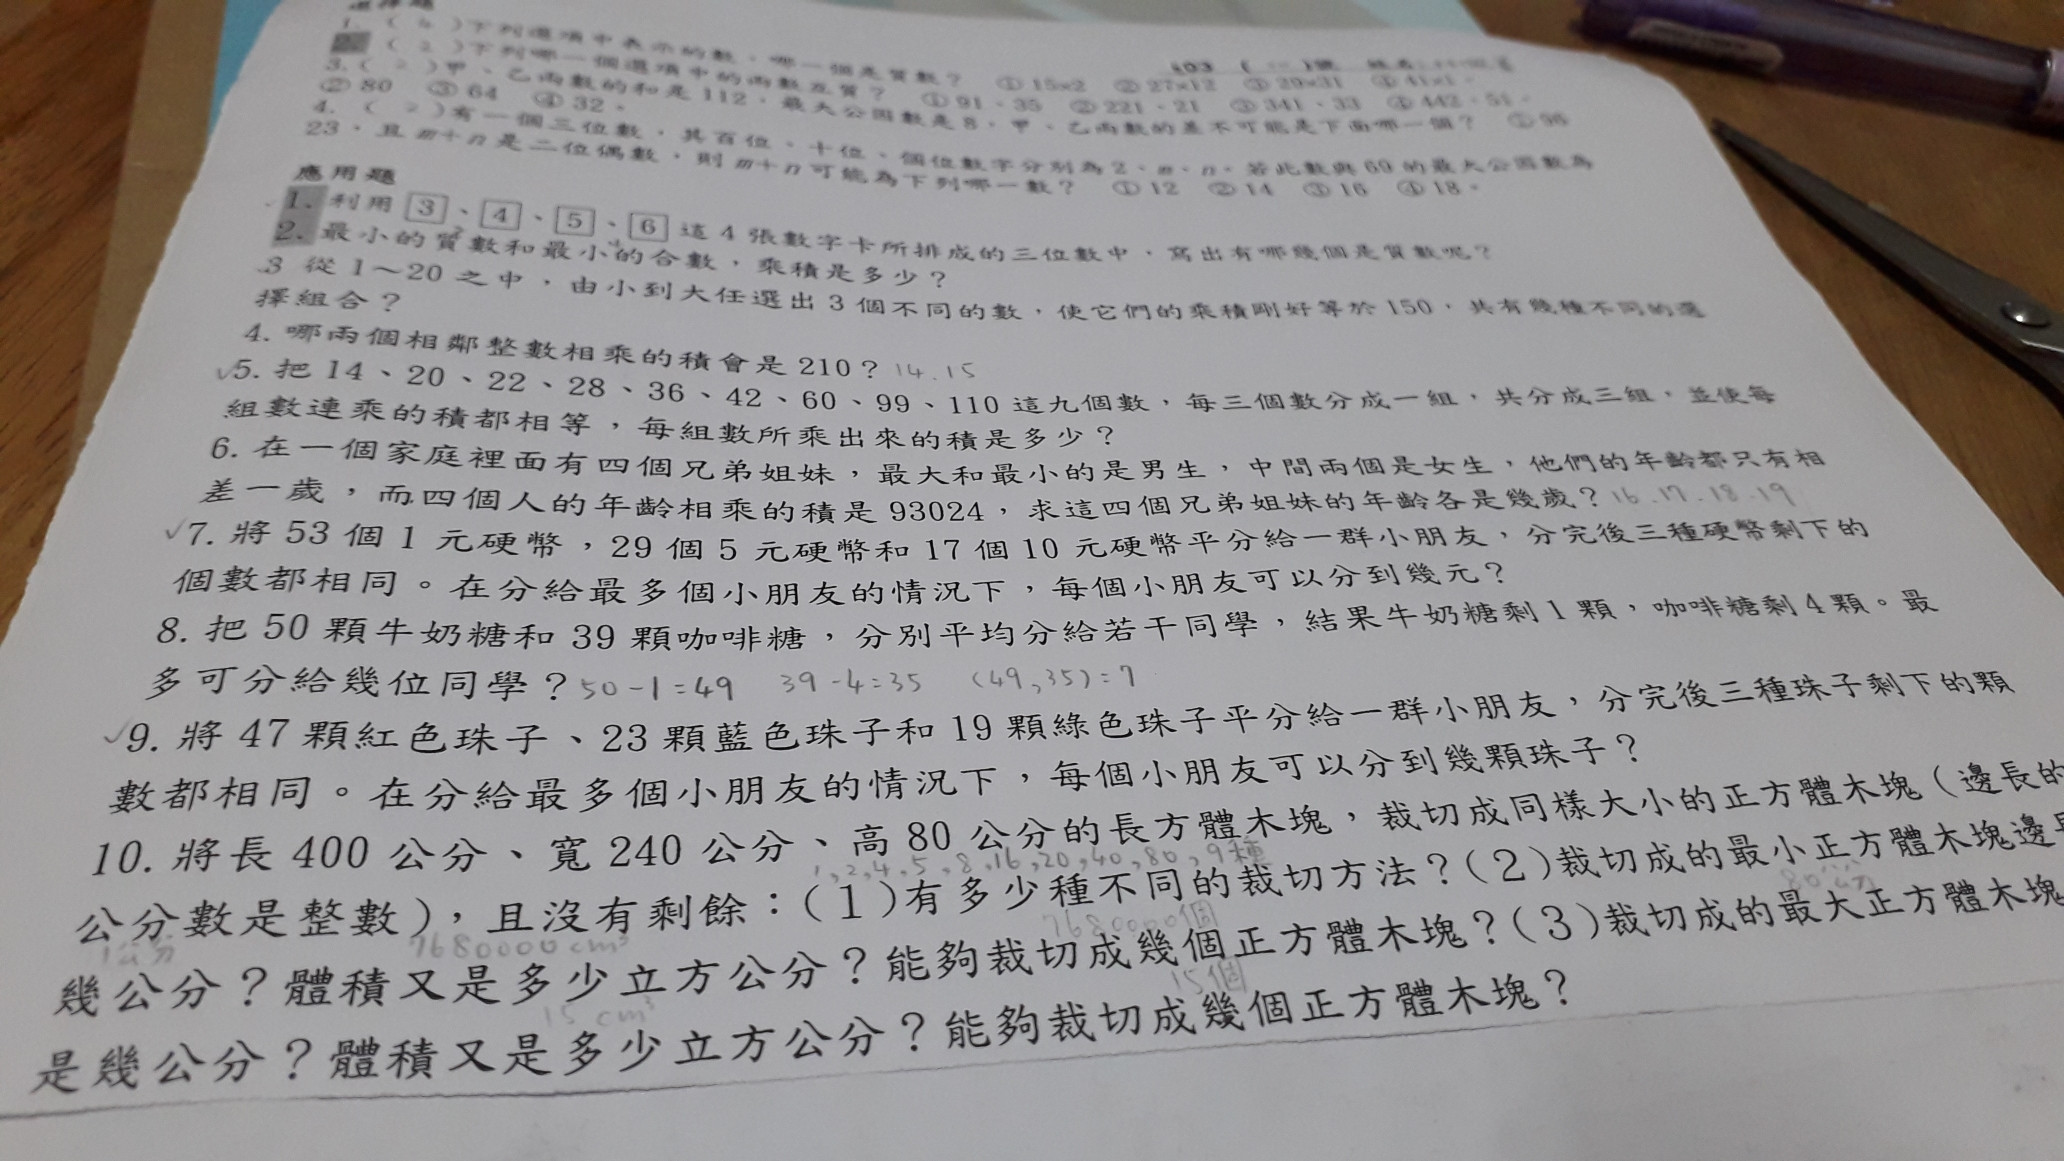 選擇題
1. ( 4 )下列選項中表示的數,哪一個是質數? ① 15×2 ② 27×12 ③ 29×31 ④ 41×1。
2. ( 2 )下列哪一個選項中的兩數互質? ① 91、35 ② 221、21 ③ 341、33 ④ 442、51。
3. ( 2 )甲、乙兩數的和是 112,最大公因數是 8,甲、乙兩數的差不可能是下面哪一個? ① 96
② 80 ③ 64 ④ 32。
4. ( 2 )有一個三位數,其百位、十位、個位數字分別為 2、m、n。若此數與 69 的最大公因數為
23,且 m+n 是二位偶數,則 m+n 可能為下列哪一數? ① 12 ② 14 ③ 16 ④ 18。
應用題
1. 利用 3、4、5、6 這 4 張數字卡所排成的三位數中,寫出有哪幾個是質數呢?
2. 最小的質數和最小的合數,乘積是多少?
3 從 1~20 之中,由小到大任選出 3 個不同的數,使它們的乘積剛好等於 150,共有幾種不同的選
擇組合?
4. 哪兩個相鄰整數相乘的積會是 210? 14.15
✓5. 把 14、20、22、28、36、42、60、99、110 這九個數,每三個數分成一組,共分成三組,並使每
組數連乘的積都相等,每組數所乘出來的積是多少?
6. 在一個家庭裡面有四個兄弟姐妹,最大和最小的是男生,中間兩個是女生,他們的年齡都只有相
差一歲,而四個人的年齡相乘的積是 93024,求這四個兄弟姐妹的年齡各是幾歲? 16.17.18.19
✓7. 將 53 個 1 元硬幣,29 個 5 元硬幣和 17 個 10 元硬幣平分給一群小朋友,分完後三種硬幣剩下的
個數都相同。在分給最多個小朋友的情況下,每個小朋友可以分到幾元?
8. 把 50 顆牛奶糖和 39 顆咖啡糖,分別平均分給若干同學,結果牛奶糖剩 1 顆,咖啡糖剩 4 顆。最
多可分給幾位同學? 50-1=49 39-4=35 (49,35)=7
✓9. 將 47 顆紅色珠子、23 顆藍色珠子和 19 顆綠色珠子平分給一群小朋友,分完後三種珠子剩下的顆
數都相同。在分給最多個小朋友的情況下,每個小朋友可以分到幾顆珠子?
10. 將長 400 公分、寬 240 公分、高 80 公分的長方體木塊,裁切成同樣大小的正方體木塊(邊長的
1,2,4,5,8,16,20,40,80,9種
公分數是整數),且沒有剩餘:(1)有多少種不同的裁切方法?(2)裁切成的最小正方體木塊邊
1公分 7680000cm³ 7680000個 80公分
幾公分?體積又是多少立方公分?能夠裁切成幾個正方體木塊?(3)裁切成的最大正方體木塊
15 cm³ 15個
是幾公分?體積又是多少立方公分?能夠裁切成幾個正方體木塊?